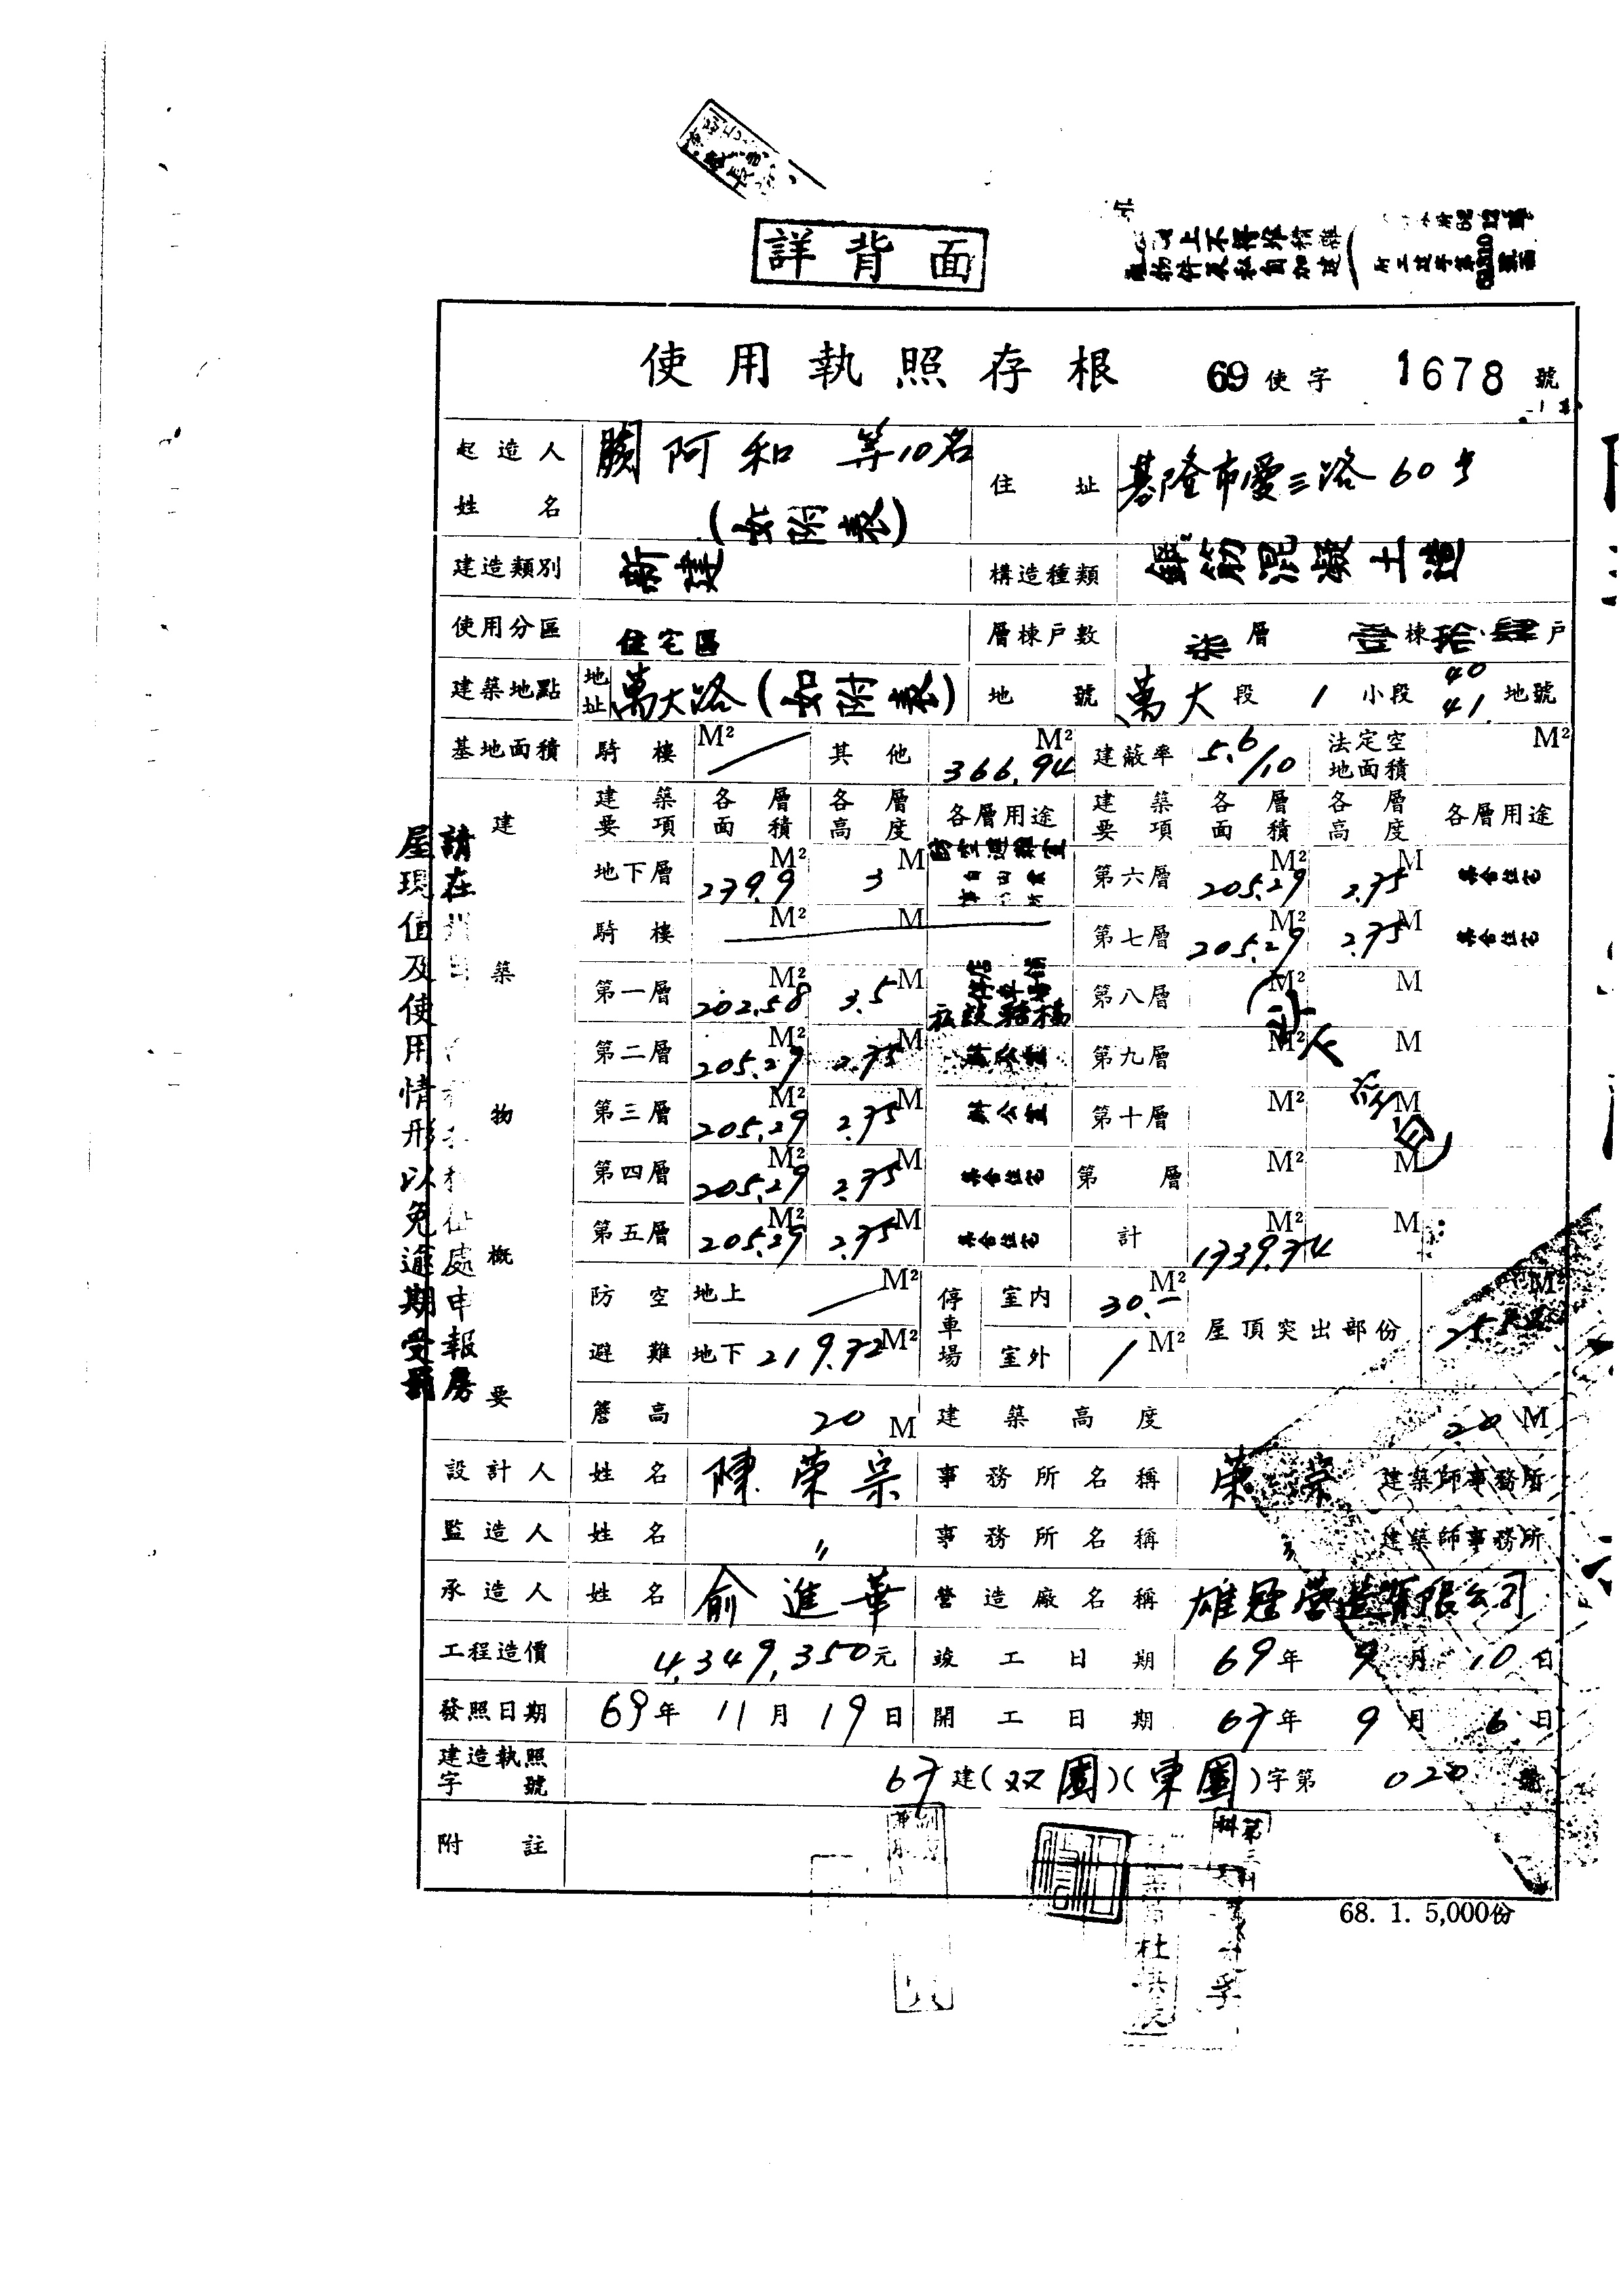 詳背面
使用執照存根 69使字 1678號
起造人姓名 阿和 等10名 (如附表) 住址 基隆市愛三路60号
建造類別 新建 構造種類 鋼筋混凝土造
使用分區 住宅區 層棟戶數 柒層 壹棟拾肆戶
建築地點 地址 萬大路(如附表) 地號 萬大段 1小段 40 41 地號
基地面積 騎樓 M² ／ 其他 366.94 M² 建蔽率 5.6/10 法定空地面積 M²
建築物概要
建築要項 各層面積 各層高度 各層用途 建築要項 各層面積 各層高度 各層用途
地下層 239.9 M² 3 M 防空避難室 第六層 205.29 M² 2.75 M 集合住宅
騎樓 M² M 第七層 205.29 M² 2.75 M 集合住宅
第一層 202.58 M² 3.5 M 第八層 M² M
第二層 205.29 M² 2.75 M 辦公室 第九層 M² M
第三層 205.29 M² 2.75 M 辦公室 第十層 M² M
第四層 205.29 M² 2.75 M 集合住宅 第 層 M² M
第五層 205.29 M² 2.75 M 集合住宅 計 M² M
(以下空白)
防空避難 地上 ／ M² 停車場 室內 30.— M² 屋頂突出部份 M²
地下 219.72 M² 室外 / M²
簷高 20 M 建築高度 20 M
設計人 姓名 陳榮宗 事務所名稱 榮宗 建築師事務所
監造人 姓名 〃 事務所名稱 〃 建築師事務所
承造人 姓名 俞進華 營造廠名稱 雄冠營造有限公司
工程造價 4,349,350元 竣工日期 69年9月10日
發照日期 69年11月19日 開工日期 67年9月6日
建造執照字號 67建(双園)(東園)字第020號
附註
68. 1. 5,000份
請在
處申報房
屋現值及使用情形以免逾期受罰